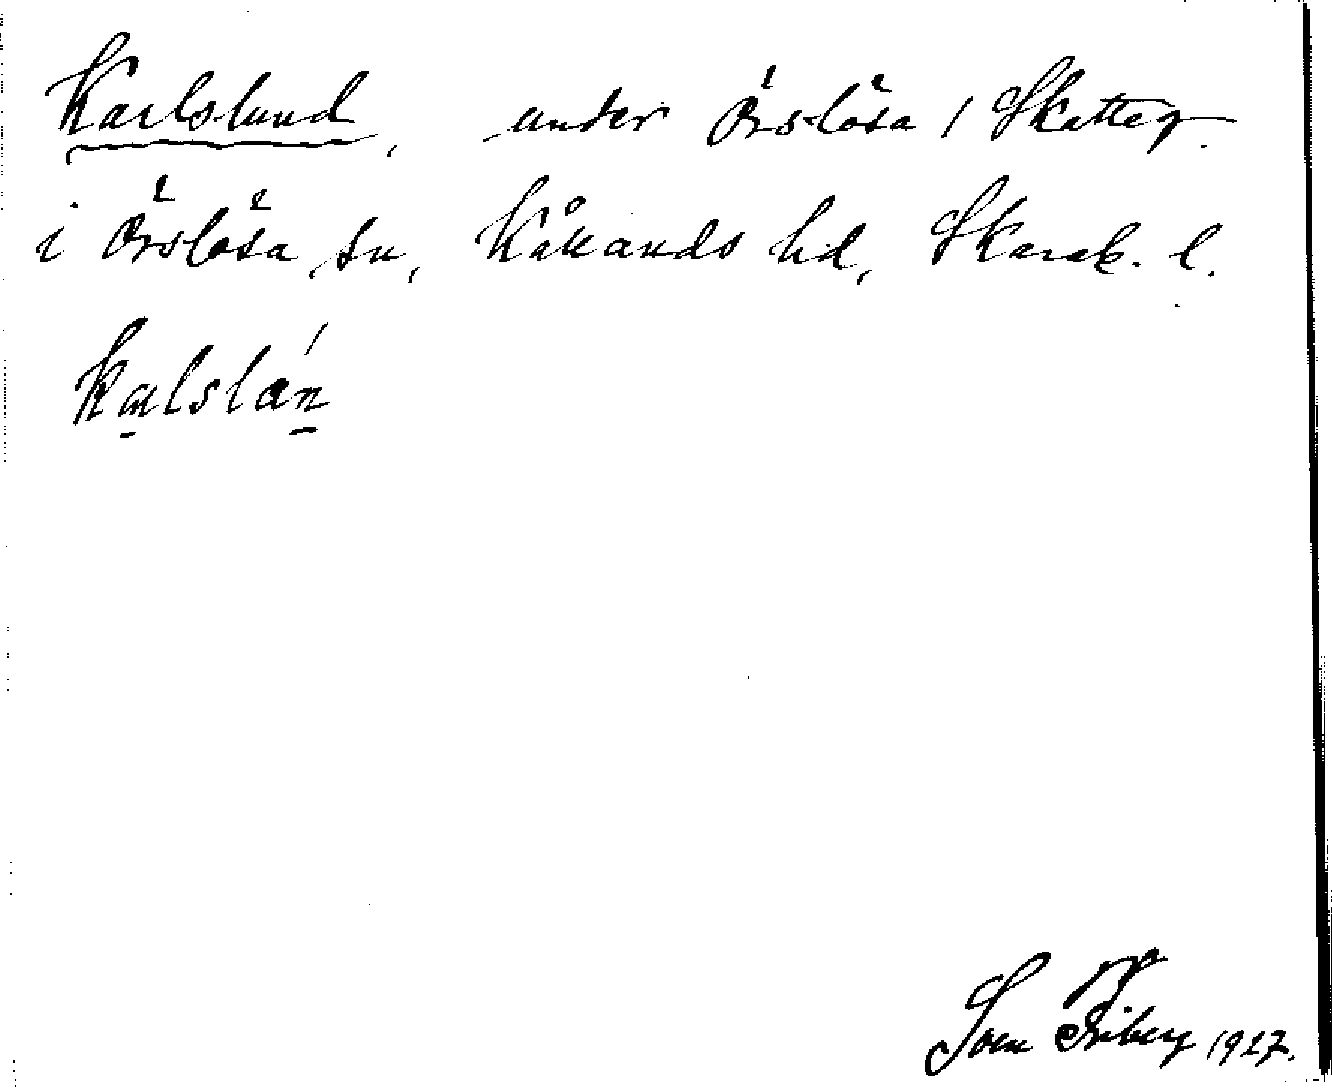 Karlslund, under Örslösa 1 Skatteg.
i Örslösa sn, Kållands hd, Skarab. l.
Kalslán
Sven Friberg 1927.